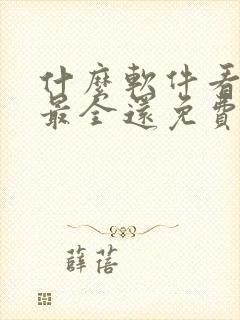 什麼軟件看
最全還免費
薛蓓